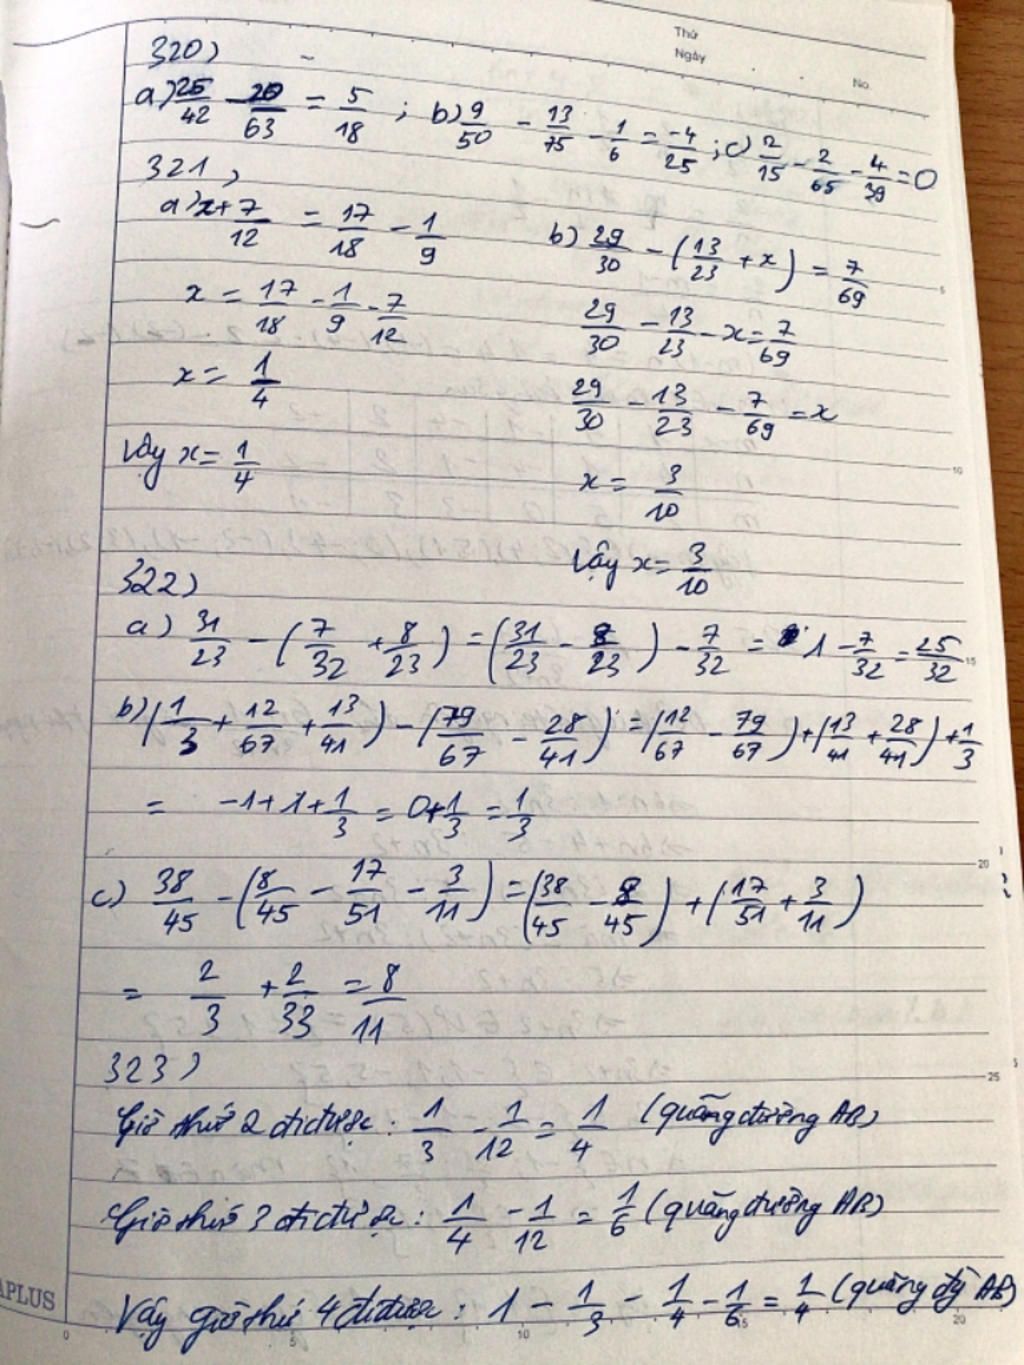 Thứ
Ngày
No.
320)
a) 25/42 - 20/63 = 5/18 ; b) 9/50 - 13/75 - 1/6 = -4/25 ; c) 2/15 - 2/65 - 4/39 = 0
321,
a) x + 7/12 = 17/18 - 1/9
b) 29/30 - (13/23 + x) = 7/69
x = 17/18 - 1/9 - 7/12
29/30 - 13/23 - x = 7/69
x = 1/4
29/30 - 13/23 - 7/69 = x
Vậy x = 1/4
x = 3/10
Vậy x = 3/10
322)
a) 31/23 - (7/32 + 8/23) = (31/23 - 8/23) - 7/32 = 1 - 7/32 = 25/32
b) (1/3 + 12/67 + 13/41) - (79/67 - 28/41) = (12/67 - 79/67) + (13/41 + 28/41) + 1/3
= -1 + 1 + 1/3 = 0 + 1/3 = 1/3
c) 38/45 - (8/45 - 17/51 - 3/11) = (38/45 - 8/45) + (17/51 + 3/11)
= 2/3 + 2/33 = 8/11
323)
Giờ thứ 2 đi được : 1/3 - 1/12 = 1/4 (quãng đường AB)
Giờ thứ 3 đi được : 1/4 - 1/12 = 1/6 (quãng đường AB)
Vậy giờ thứ 4 đi được : 1 - 1/3 - 1/4 - 1/6 = 1/4 (quãng đg AB)
APLUS
5
10
15
20
25
0 5 10 15 20